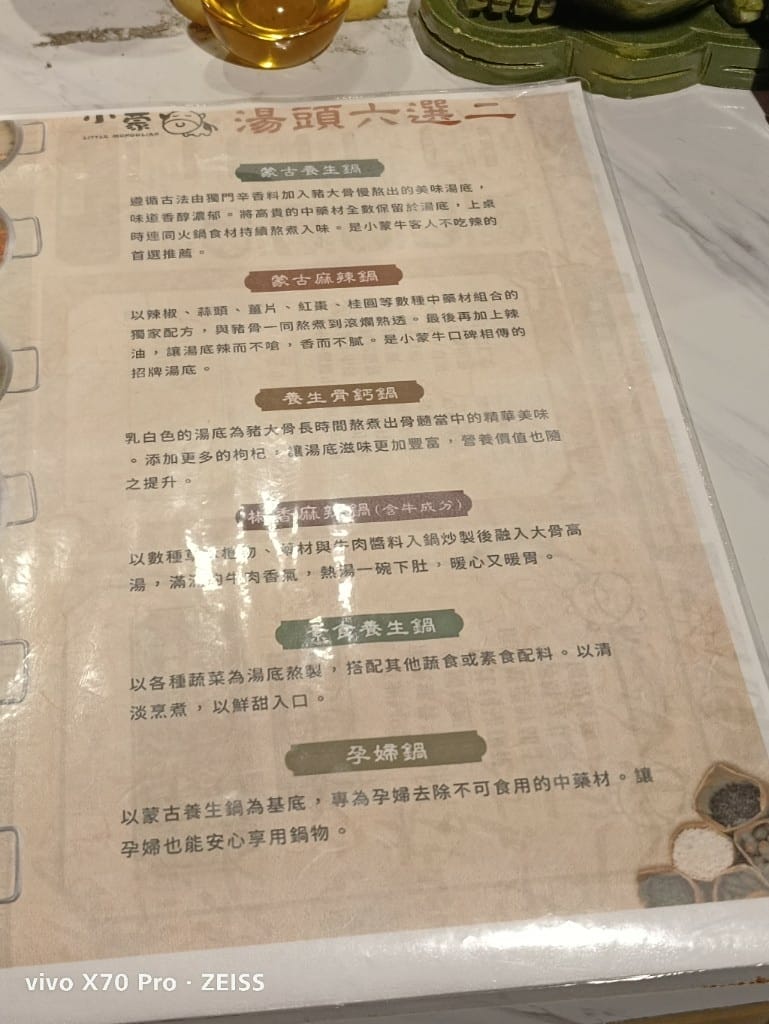 小蒙
LITTLE MONGOLIAN
湯頭六選二
蒙古養生鍋
遵循古法由獨門辛香料加入豬大骨慢熬出的美味湯底，
味道香醇濃郁。將高貴的中藥材全數保留於湯底，上桌
時連同火鍋食材持續熬煮入味。是小蒙牛客人不吃辣的
首選推薦。
蒙古麻辣鍋
以辣椒、蒜頭、薑片、紅棗、桂圓等數種中藥材組合的
獨家配方，與豬骨一同熬煮到滾爛熟透。最後再加上辣
油，讓湯底辣而不嗆，香而不膩。是小蒙牛口碑相傳的
招牌湯底。
養生骨鈣鍋
乳白色的湯底為豬大骨長時間熬煮出骨髓當中的精華美味
。添加更多的枸杞，讓湯底滋味更加豐富，營養價值也隨
之提升。
椒香麻辣鍋(含牛成分)
以數種草本植物、藥材與牛肉醬料入鍋炒製後融入大骨高
湯，滿滿的牛肉香氣，熱湯一碗下肚，暖心又暖胃。
素食養生鍋
以各種蔬菜為湯底熬製，搭配其他蔬食或素食配料。以清
淡烹煮，以鮮甜入口。
孕婦鍋
以蒙古養生鍋為基底，專為孕婦去除不可食用的中藥材。讓
孕婦也能安心享用鍋物。
vivo X70 Pro · ZEISS